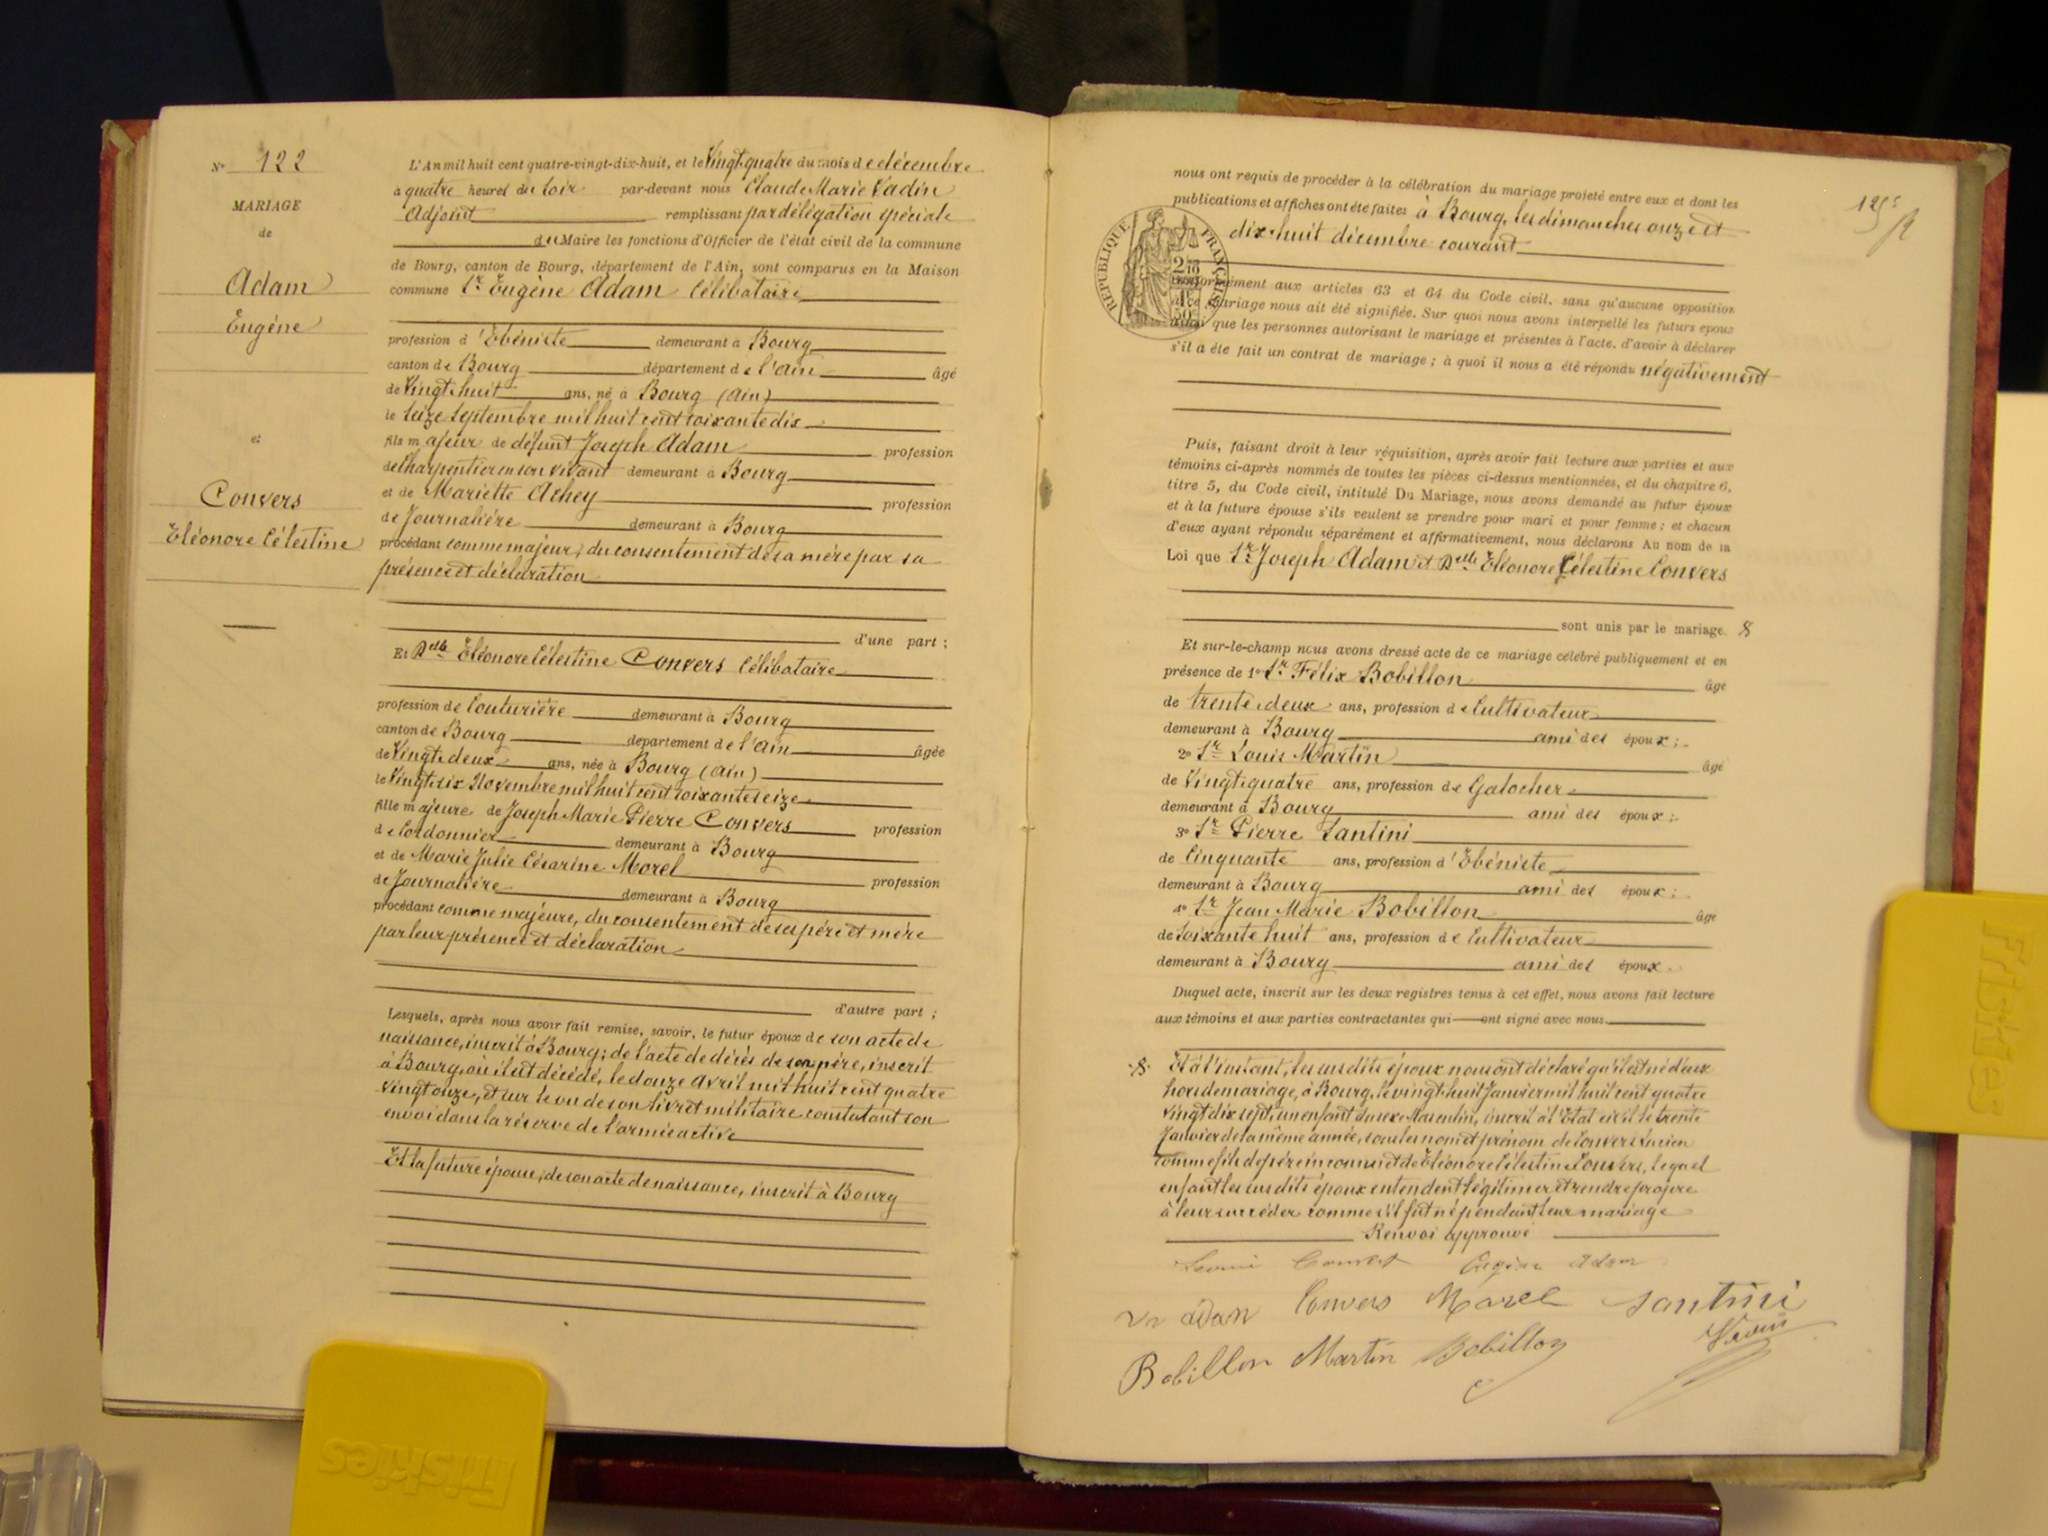 N° 122
MARIAGE
de
Adam
Eugène
et
Convers
Eléonore Célestine
L'An mil huit cent quatre-vingt-dix-huit, et le Vingt quatre du mois de décembre
à quatre heures du soir par-devant nous Claude Marie Vadin
Adjoint remplissant par délégation spéciale
du Maire les fonctions d'Officier de l'état civil de la commune
de Bourg, canton de Bourg, département de l'Ain, sont comparus en la Maison
commune Sr Eugène Adam Célibataire
profession d'Ebéniste demeurant à Bourg
canton de Bourg département de l'Ain âgé
de Vingt huit ans, né à Bourg (Ain)
le Seize Septembre mil huit cent soixante dix
fils majeur de défunt Joseph Adam profession
de Charpentier en son vivant demeurant à Bourg
et de Mariette Athey profession
de Journalière demeurant à Bourg
procédant comme majeur, du consentement de sa mère par sa
présence et déclaration
d'une part ;
Et Delle Eléonore Célestine Convers Célibataire
profession de Couturière demeurant à Bourg
canton de Bourg département de l'Ain âgée
de Vingt deux ans, née à Bourg (Ain)
le Vingt six Novembre mil huit cent soixante seize
fille majeure de Joseph Marie Pierre Convers profession
de Cordonnier demeurant à Bourg
et de Marie Julie Césarine Morel profession
de Journalière demeurant à Bourg
procédant comme majeure, du consentement de ses père et mère
par leur présence et déclaration
d'autre part ;
Lesquels, après nous avoir fait remise, savoir, le futur époux de son acte de
naissance, inscrit à Bourg ; de l'acte de décès de son père, inscrit
à Bourg, où il est décédé, le douze Avril mil huit cent quatre
vingt onze, et sur le vu de son livret militaire constatant son
envoi dans la réserve de l'armée active
Et la future épouse, de son acte de naissance, inscrit à Bourg
nous ont requis de procéder à la célébration du mariage projeté entre eux et dont les
publications et affiches ont été faites à Bourg, les dimanches onze et
dix-huit décembre courant
RÉPUBLIQUE FRANÇAISE
conformément aux articles 63 et 64 du Code civil, sans qu'aucune opposition
à ce mariage nous ait été signifiée. Sur quoi nous avons interpellé les futurs époux
ainsi que les personnes autorisant le mariage et présentes à l'acte, d'avoir à déclarer
s'il a été fait un contrat de mariage ; à quoi il nous a été répondu négativement
Puis, faisant droit à leur réquisition, après avoir fait lecture aux parties et aux
témoins ci-après nommés de toutes les pièces ci-dessus mentionnées, et du chapitre 6,
titre 5, du Code civil, intitulé Du Mariage, nous avons demandé au futur époux
et à la future épouse s'ils veulent se prendre pour mari et pour femme ; et chacun
d'eux ayant répondu séparément et affirmativement, nous déclarons Au nom de la
Loi que Sr Joseph Adam et Delle Eléonore Célestine Convers
sont unis par le mariage.
Et sur-le-champ nous avons dressé acte de ce mariage célébré publiquement et en
présence de 1° Sr Félix Bobillon âgé
de trente deux ans, profession de Cultivateur
demeurant à Bourg ami des époux ;
2° Sr Louis Martin âgé
de Vingt quatre ans, profession de Galocher
demeurant à Bourg ami des époux ;
3° Sr Pierre Santini
de Cinquante ans, profession d'Ebéniste
demeurant à Bourg ami des époux ;
4° Sr Jean Marie Bobillon âgé
de Soixante huit ans, profession de Cultivateur
demeurant à Bourg ami des époux.
Duquel acte, inscrit sur les deux registres tenus à cet effet, nous avons fait lecture
aux témoins et aux parties contractantes qui ont signé avec nous
Et à l'instant, les susdits époux nous ont déclaré qu'il est né d'eux
hors de mariage, à Bourg, le vingt-huit Janvier mil huit cent quatre
vingt dix sept, un enfant du sexe Masculin, inscrit à l'Etat civil le trente
Janvier de la même année, sous les nom et prénom de Convers Lucien
comme fils de père inconnu et de Eléonore Célestine Convers, lequel
enfant les susdits époux entendent légitimer et rendre propre
à leur succéder comme s'il fût né pendant leur mariage
Renvoi approuvé
Eugène Adam
Ve adan Convers Morel Santini
Bobillon Martin Bobillon Vadin
Friskies
Friskies